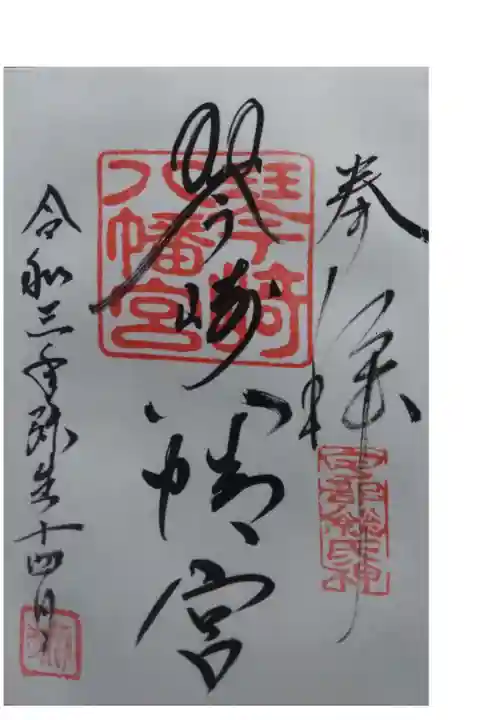 奉拝
琴崎八幡宮
琴崎八幡宮
令和三年弥生十四日